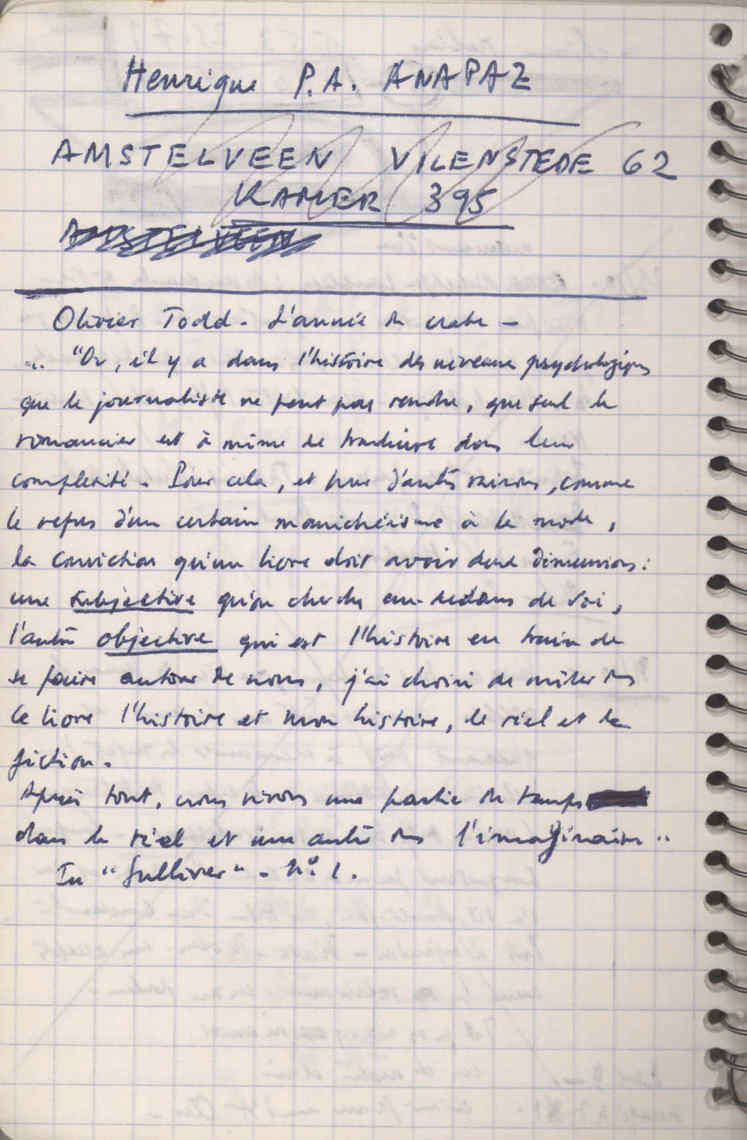 Henrique P.A. ANAPAZ
AMSTELVEEN VILENSTEDE 62
KAMER 395
AMSTELVEEN
Olivier Todd - L'année du crabe -
.. "Or, il y a dans l'histoire des niveaux psychologiques
que le journaliste ne peut pas rendre, que seul le
romancier est à même de traduire dans leur
complexité. Pour cela, et pour d'autres raisons, comme
le refus d'un certain manichéisme à la mode,
la conviction qu'un livre doit avoir deux dimensions:
une subjective qu'on cherche au-dedans de soi,
l'autre objective qui est l'histoire en train de
se faire autour de nous, j'ai choisi de mêler dans
ce livre l'histoire et mon histoire, le réel et la
fiction.
Après tout, nous vivons une partie du temps
dans le réel et une autre dans l'imaginaire ..
In "Gulliver" - Nº 1.